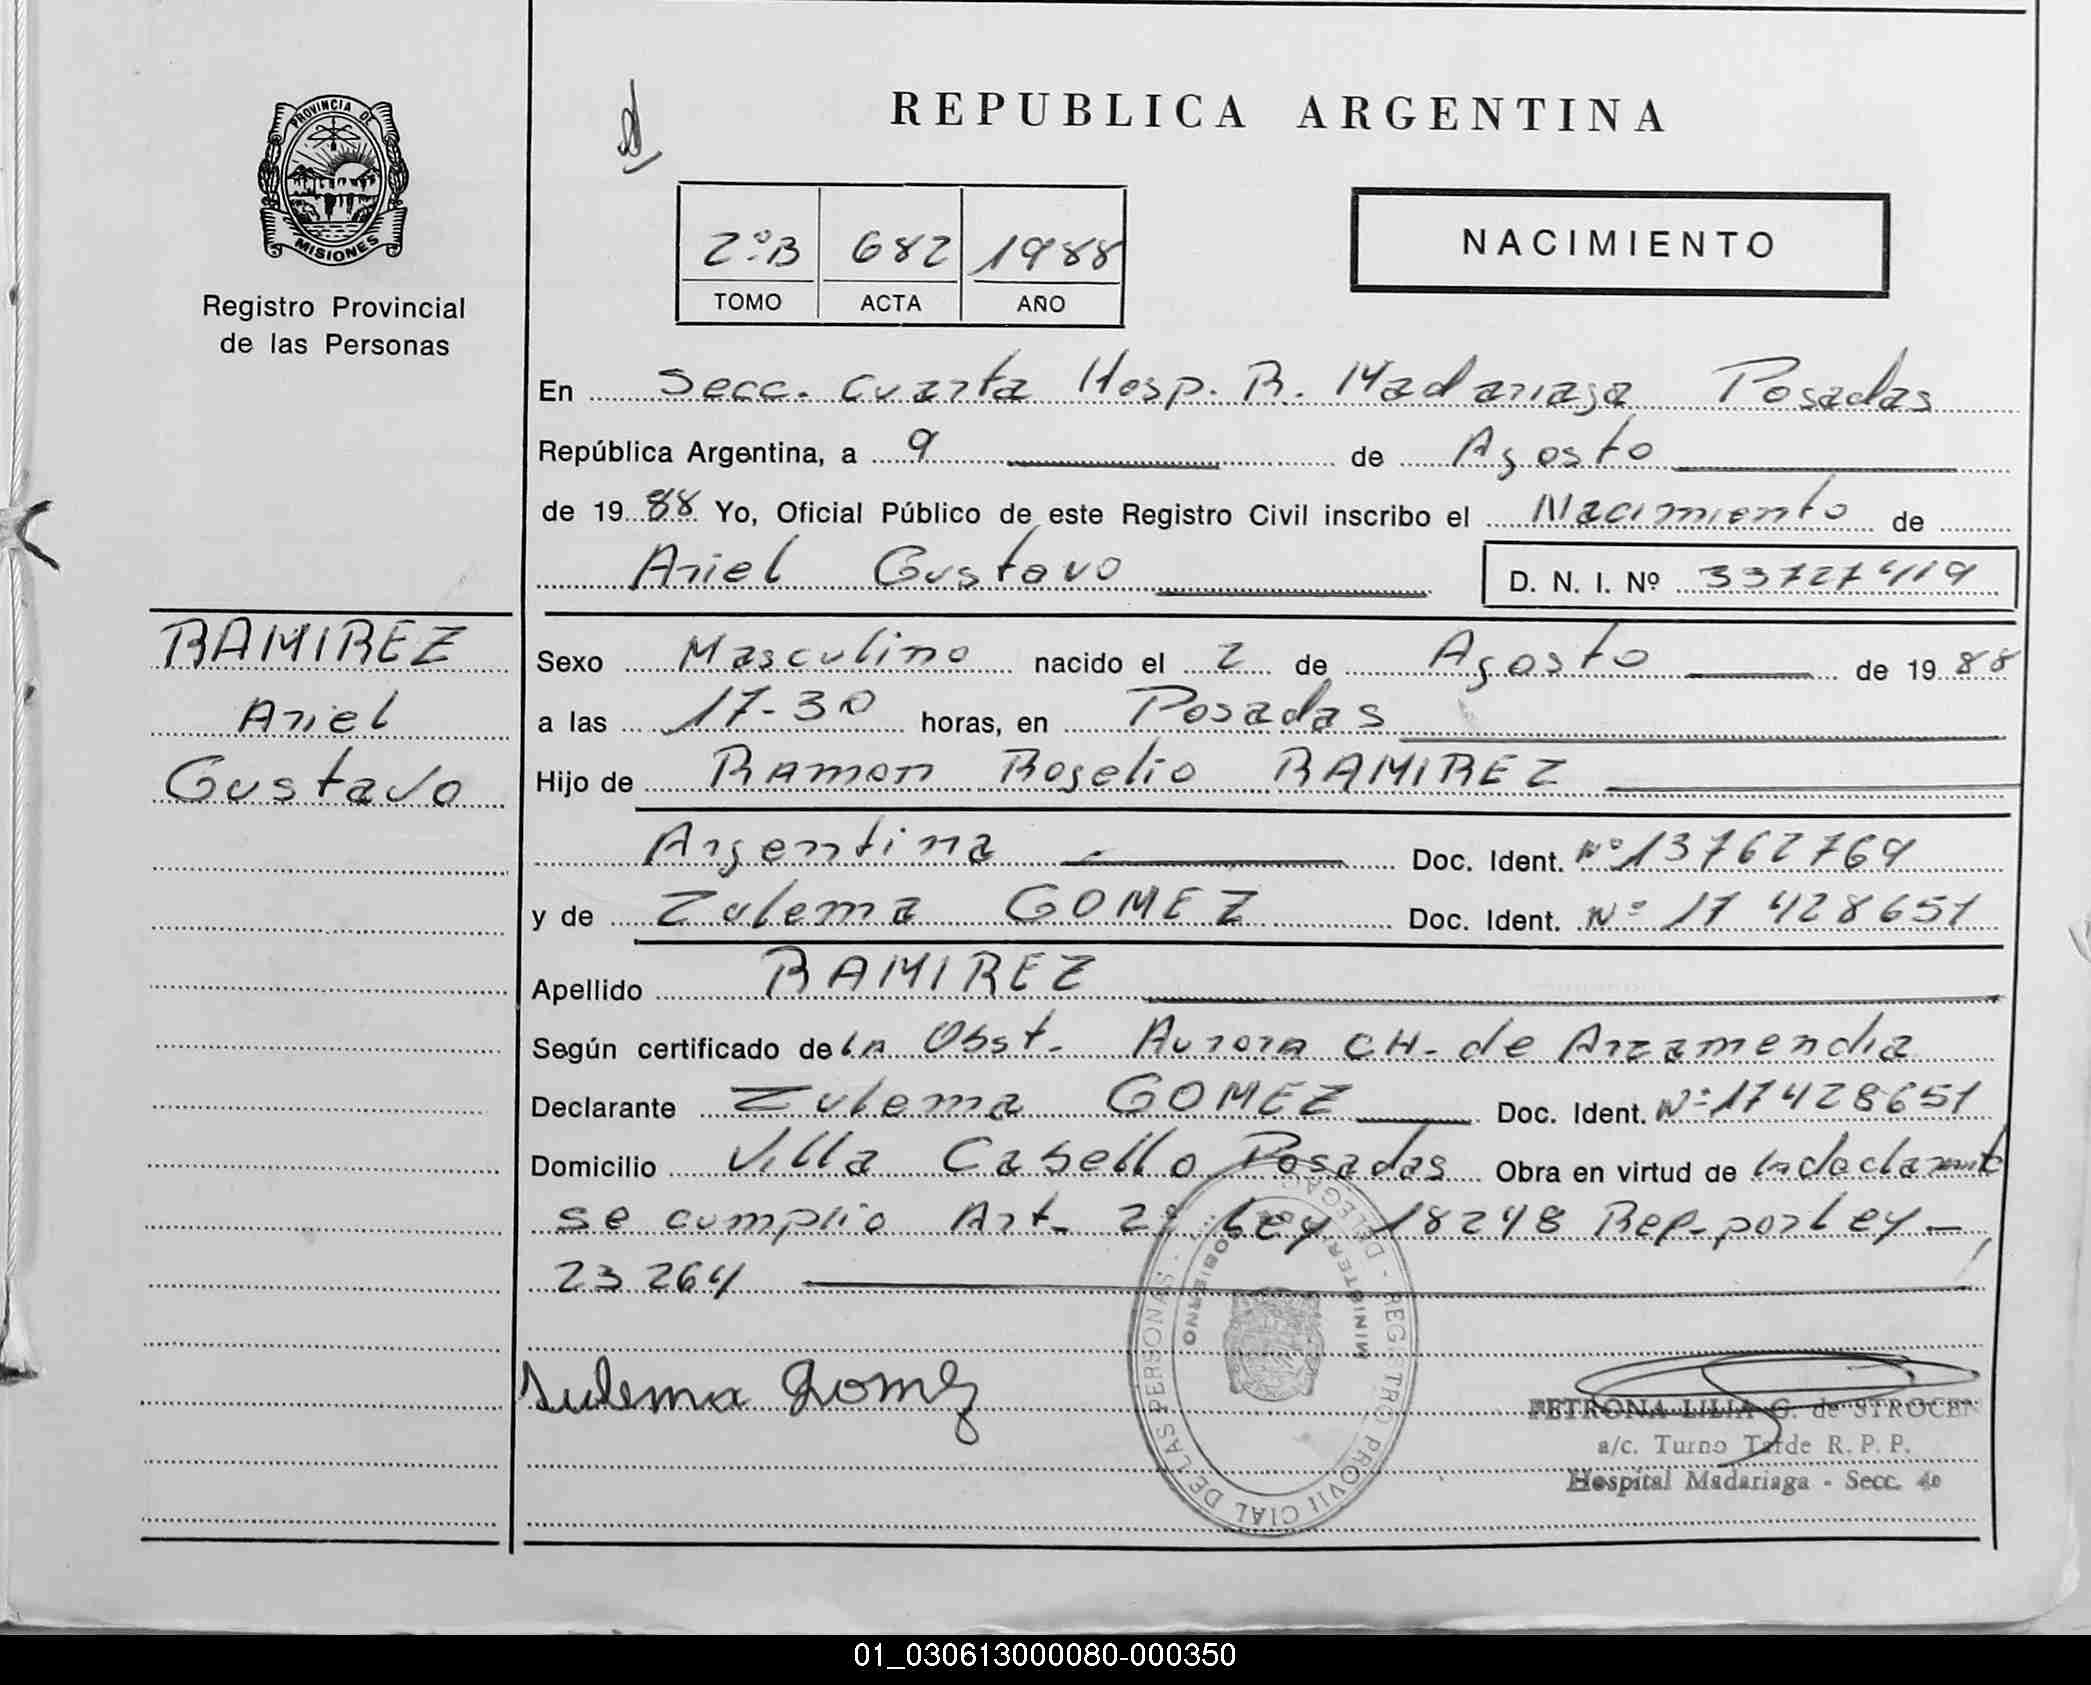 PROVINCIA DE
MISIONES
Registro Provincial
de las Personas
RAMIREZ
Ariel
Gustavo
REPUBLICA ARGENTINA
2º B 682 1988
TOMO ACTA AÑO
NACIMIENTO
En Secc. Cuarta Hosp. R. Madariaga Posadas
República Argentina, a 9 de Agosto
de 19 88 Yo, Oficial Público de este Registro Civil inscribo el Nacimiento de
Ariel Gustavo D. N. I. Nº 33727419
Sexo Masculino nacido el 2 de Agosto de 19 88
a las 17-30 horas, en Posadas
Hijo de Ramon Rogelio RAMIREZ
Argentina Doc. Ident. Nº 13762769
y de Zulema GOMEZ Doc. Ident. Nº 17 428651
Apellido RAMIREZ
Según certificado de la Obst. Aurora CH. de Arzamendia
Declarante Zulema GOMEZ Doc. Ident. Nº 17428651
Domicilio Villa Cabello Posadas Obra en virtud de
se cumplio Art. 2º Ley 18248 Rep. por Ley -
23264
Zulema Gomez
REGISTRO PROVINCIAL DE LAS PERSONAS - DELEGA
MINISTER GOBIERNO
PETRONA LILIA G. de STROCEN
a/c. Turno Tarde R. P. P.
Hospital Madariaga - Secc. 4o
01_030613000080-000350